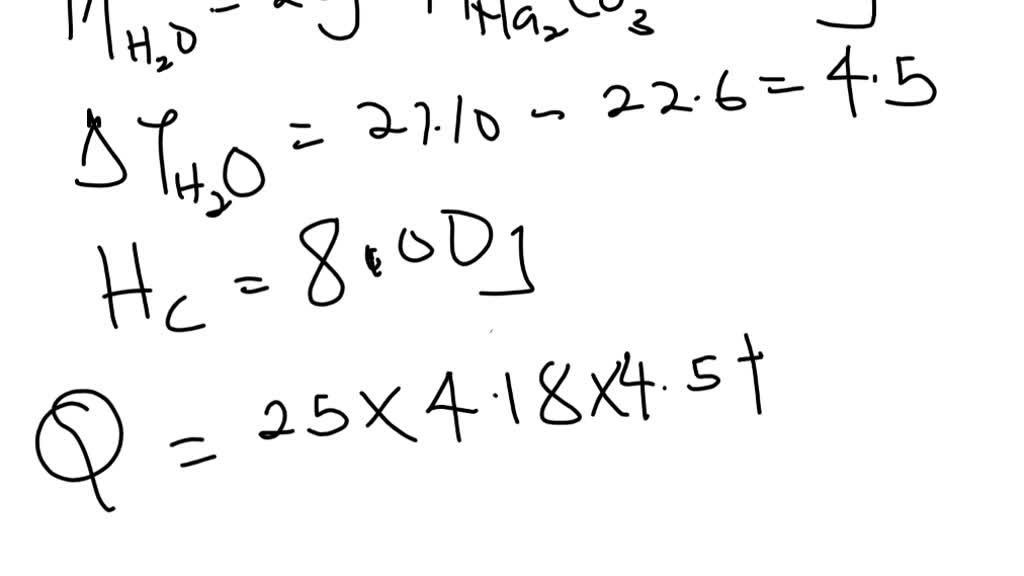 M H₂O = Na₂CO₃
ΔT H₂O = 27.10 - 22.6 = 4.5
Hc = 8.00J
Q = 25 × 4.18 × 4.5 +